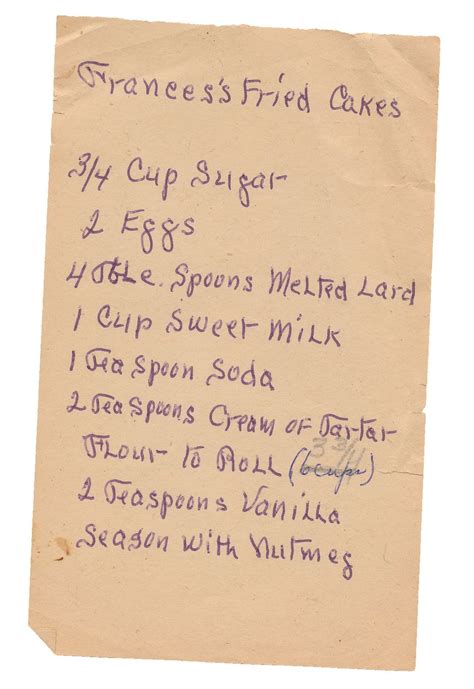 Frances's Fried Cakes
3/4 Cup Sugar
2 Eggs
4 Tble. Spoons Melted Lard
1 Cup Sweet Milk
1 Tea Spoon Soda
2 Tea Spoons Cream of Tartar
3 3/4
Flour to Roll (6 cups)
2 Teaspoons Vanilla
Season with Nutmeg